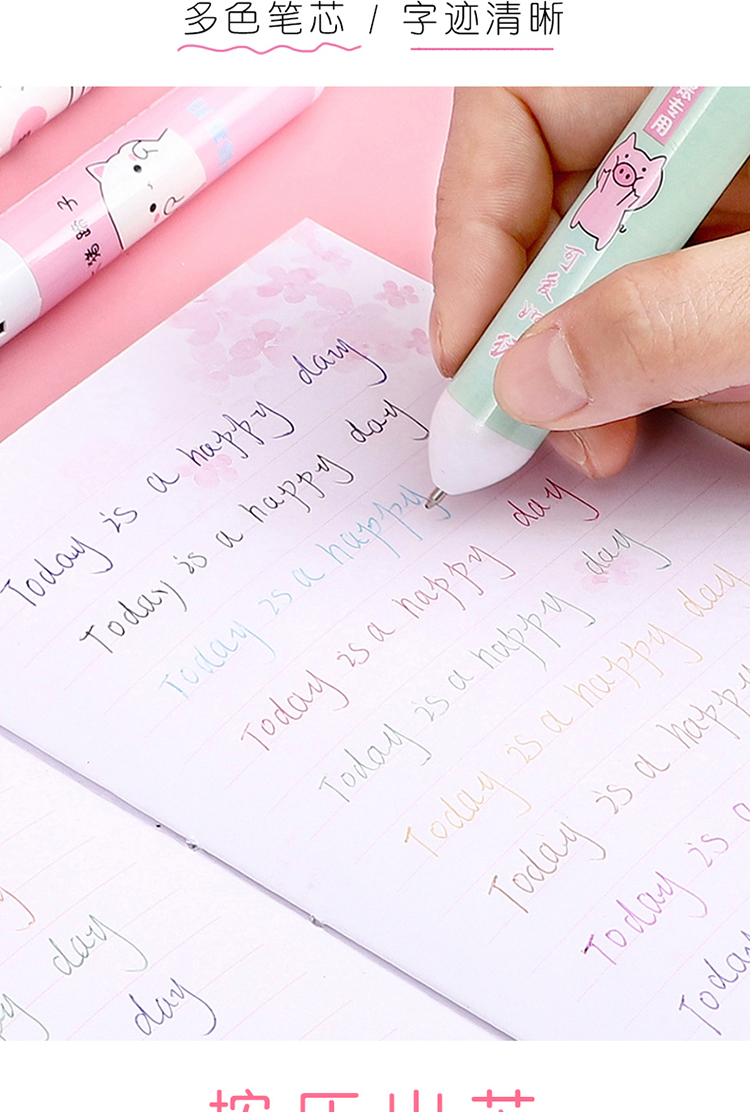 多色笔芯 / 字迹清晰
Today is a happy day
Today is a happy day
Today is a happy
Today is a happy day
Today is a happy day
Today is a happy day
Today is a happy
Today is a
Today
day
day
按压出芯